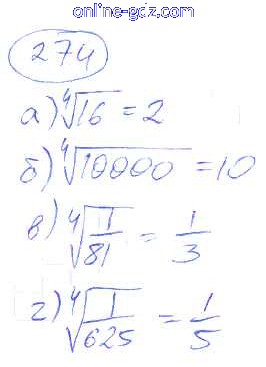 online-gdz.com
274
а) ⁴√16 = 2
б) ⁴√10000 = 10
в) ⁴√(1/81) = 1/3
г) ⁴√(1/625) = 1/5